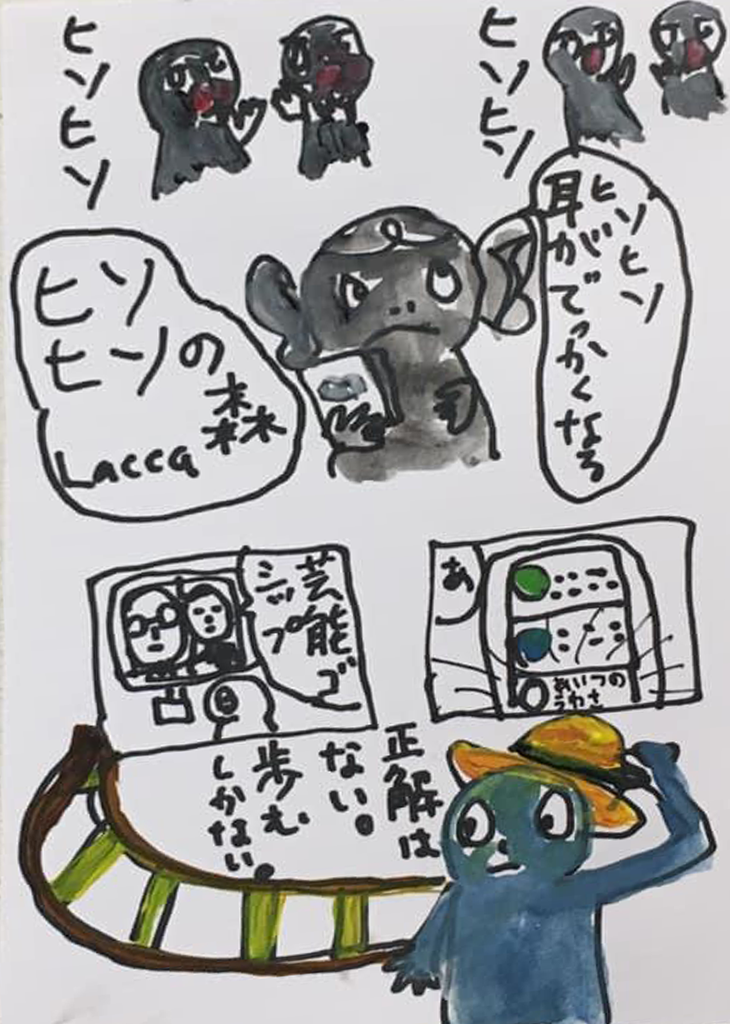 ヒソヒソ
ヒソヒソ
ヒソ
ヒソの
森
Lacca
ヒソヒソ
耳がでっかくなる
芸能ゴ
シップ
あ
あいつの
うわさ
正解は
ない。
歩む
しかない。